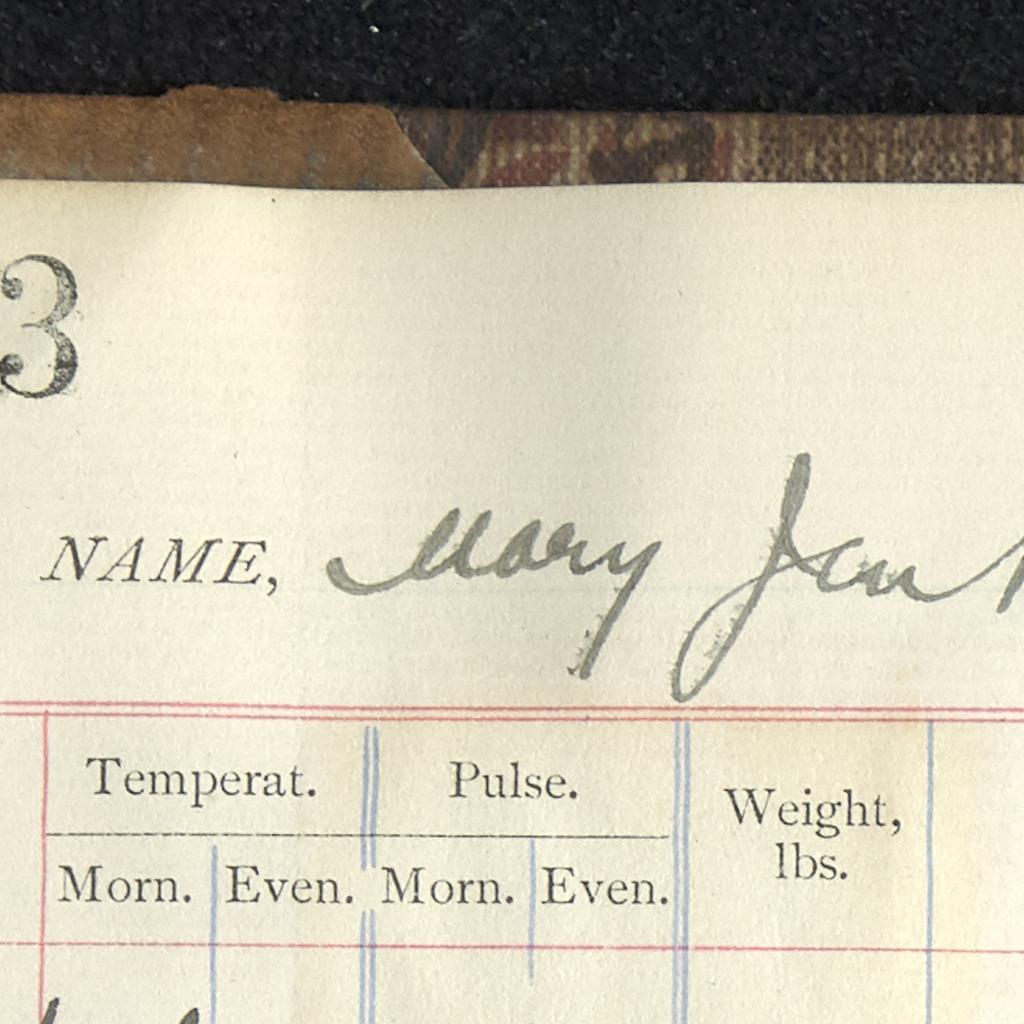 3
NAME, Mary
Temperat. Pulse. Weight,
lbs.
Morn. Even. Morn. Even.